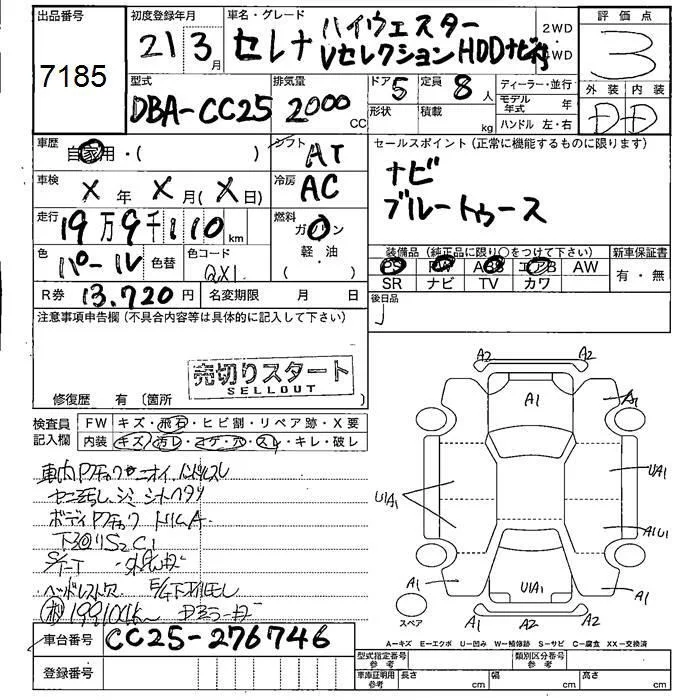 出品番号 7185
初度登録年月 21 3月
車名・グレード セレナ ハイウェスター
Vセレクション HDDナビ付
2WD・4WD
評価点 3
外装 内装
D D
型式 DBA-CC25
排気量 2000 CC
ドア 5 定員 8人
形状 積載 kg
ディーラー・並行
モデル年式 年
ハンドル 左・右
車歴 自家用・( )
シフト AT
車検 X年 X月(X日)
冷房 AC
走行 19万9千110km
燃料 ガソリン
軽・油
( ・ )
色 パール 色替
色コード QX1
R券 13.720円
名変期限 月 日
セールスポイント(正常に機能するものに限ります)
ナビ
ブルートゥース
装備品(純正品に限り○をつけて下さい)
PS PW ABS エアB AW
SR ナビ TV カワ
新車保証書
有・無
後日品
注意事項申告欄(不具合内容等は具体的に記入して下さい)
売切りスタート
SELLOUT
修復歴 有〔箇所 〕
検査員記入欄
FW キズ・飛石・ヒビ割・リペア跡・X要
内装 キズ・汚レ・コゲ・穴・スレ・キレ・破レ
車内Pタッチ・ニオイ ハンドルスレ
ボディPタッチ トリムA
ヘッドレスト欠
199100k
車台番号 CC25-276746
登録番号
A2 A2 A2
A1 A1
U1A1 U1A1
A1U1
A1 U1A1 A1
A2 A2 A2
スペア
A-キズ E-エクボ U-凹み W-補修跡 S-サビ C-腐食 XX-交換済
型式指定番号 参考
類別区分番号 参考
車庫証明用 参考 長さ cm 幅 cm 高さ cm